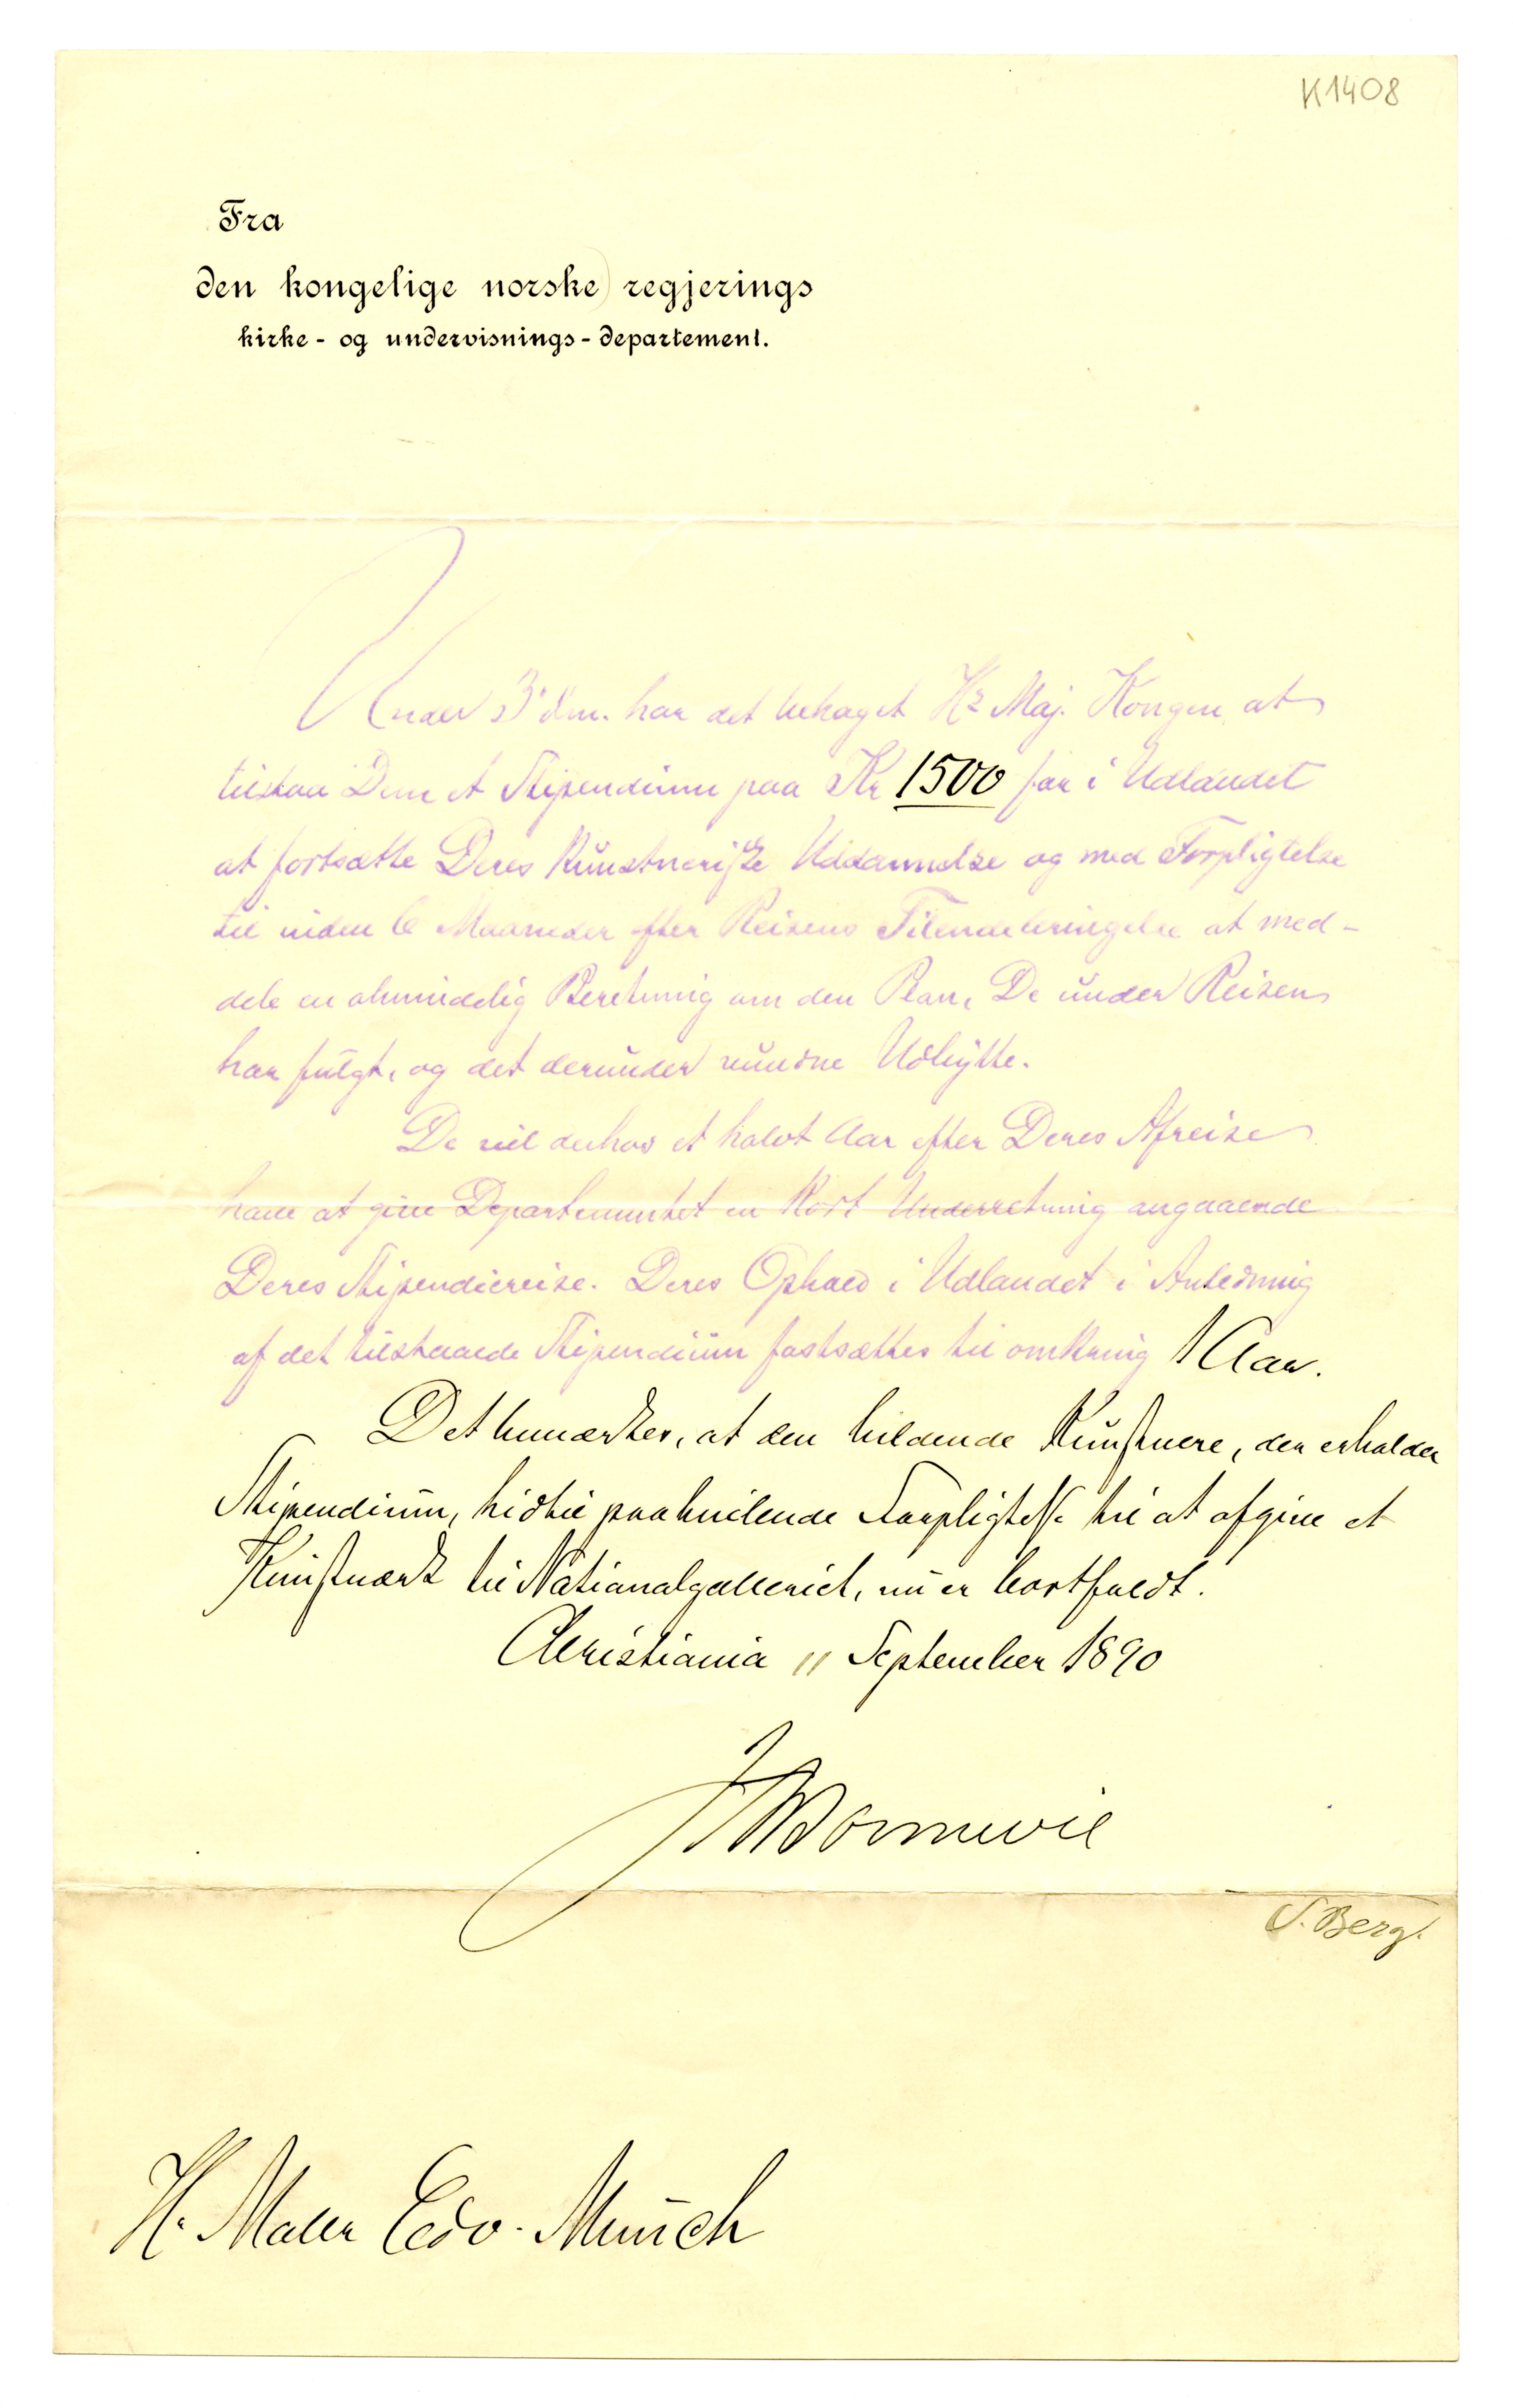 K1408
Fra
den kongelige norske regjerings
kirke- og undervisnings-departement.
Under 3' dm. har det behaget Hs Maj. Kongen at
tilstaa Dem et Stipendium paa Kr 1500 for i Udlandet
at fortsætte Deres kunstneriske Uddannelse og med Forpligtelse
til inden 6 Maaneder efter Reisens Tilendebringelse at med-
dele en almindelig Beretning om den Plan, De under Reisen
har fulgt, og det derunder vundne Udbytte.
De vil derhos et halvt Aar efter Deres Afreise
have at give Departementet en kort Underretning angaaende
Deres Stipendiereise. Deres Ophold i Udlandet i Anledning
af det tilstaaede Stipendium fastsættes til omkring 1 Aar.
Det bemærkes, at den bildende Kunstnere, der erholder
Stipendium, hidtil paahvilende Forpligtelse til at afgive et
Kunstværk til Nationalgalleriet, nu er bortfaldt.
Christiania 11 September 1890
J Bonnevie
S. Berg.
Hr. Maler Edv. Munch